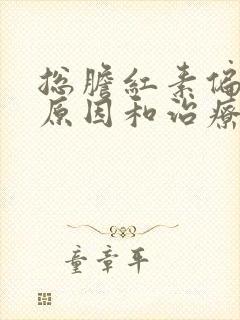 总胆红素偏
原因和治疗
童章平